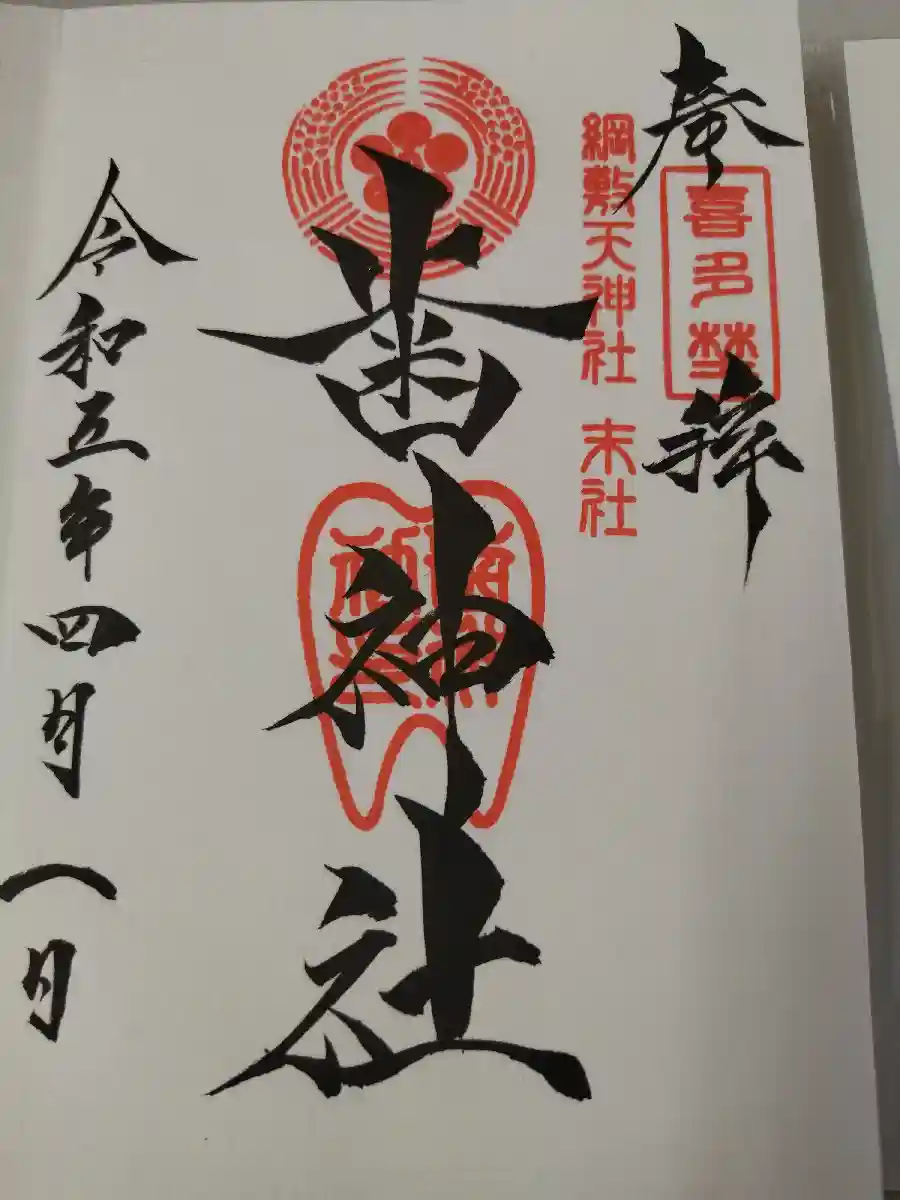 奉拝
喜多埜
綱敷天神社 末社
歯神社
令和五年四月一日